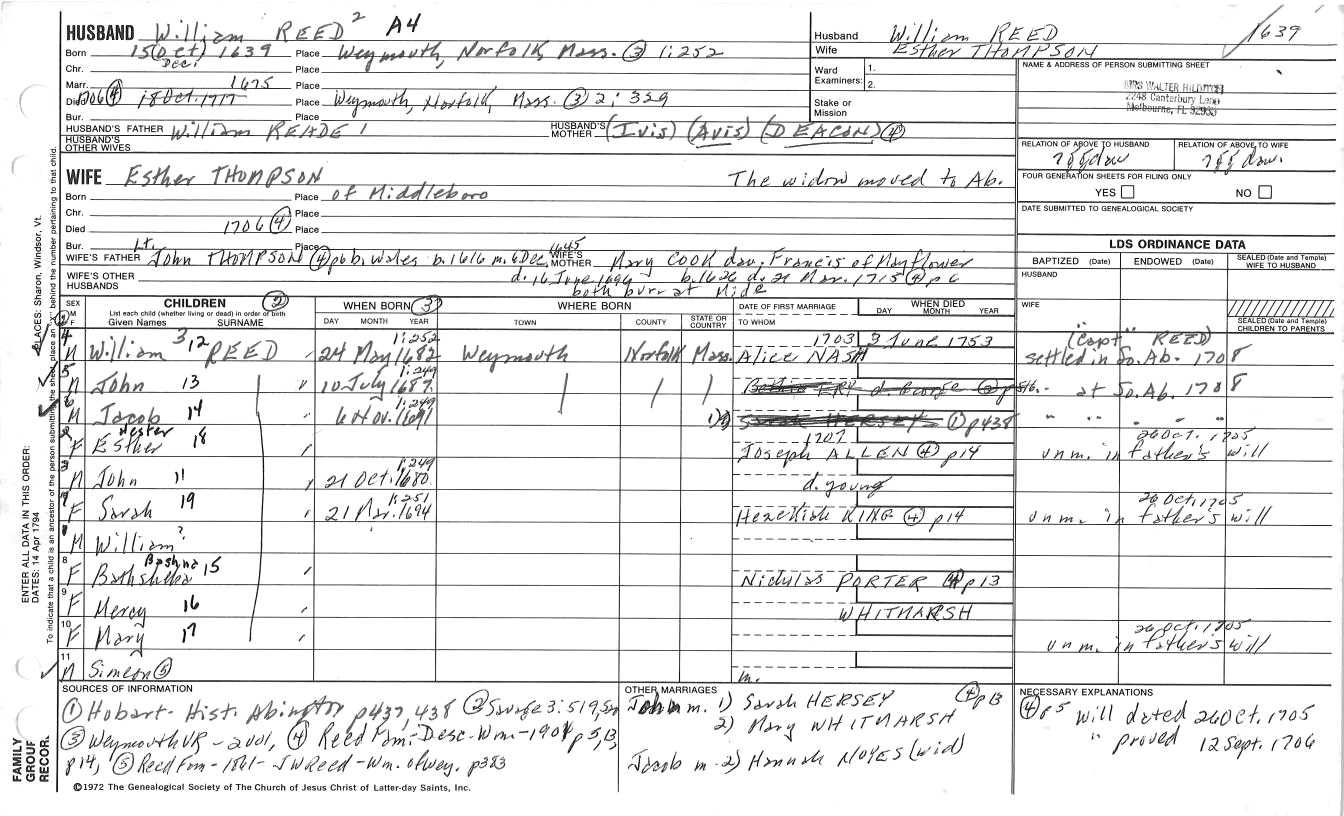 HUSBAND William REED 2 A4
Born 15 (Oct) 1639 Place Weymouth, Norfolk, Mass. ③ 1:252
Dec.
Chr. Place
Marr. 1675 Place
Died 1706 ④ 18 Oct. 1717 Place Weymouth, Norfolk, Mass. ③ 2:329
Bur. Place
HUSBAND'S FATHER William READE 1 HUSBAND'S MOTHER (Ivis) (Avis) (DEACON) ④
HUSBAND'S OTHER WIVES
WIFE Esther THOMPSON The widow moved to Ab.
Born Place of Middleboro
Chr. Place
Died 1706 ④ Place
Bur. Place
WIFE'S FATHER Lt. John THOMPSON ④ p6 b. Wales b. 1616 m. 6 Dec. 1645 WIFE'S MOTHER Mary COOK dau. Francis of Mayflower
WIFE'S OTHER HUSBANDS d. 16 June 1696 b. 1626 d. 21 Mar. 1715 ④ p 6
both bur. at Midd
Husband William REED 1639
Wife Esther THOMPSON
Ward Examiners: 1.
2.
Stake or Mission
NAME & ADDRESS OF PERSON SUBMITTING SHEET
MRS WALTER
2248 Canterbury Lane
Melbourne, FL
RELATION OF ABOVE TO HUSBAND RELATION OF ABOVE TO WIFE
7 gg dau 7 gg dau.
FOUR GENERATION SHEETS FOR FILING ONLY
YES NO
DATE SUBMITTED TO GENEALOGICAL SOCIETY
LDS ORDINANCE DATA
BAPTIZED (Date) ENDOWED (Date) SEALED (Date and Temple) WIFE TO HUSBAND
HUSBAND
WIFE
SEALED (Date and Temple) CHILDREN TO PARENTS
SEX M F
CHILDREN ②
List each child (whether living or dead) in order of birth
Given Names SURNAME
WHEN BORN ③ DAY MONTH YEAR
WHERE BORN TOWN COUNTY STATE OR COUNTRY
DATE OF FIRST MARRIAGE TO WHOM
WHEN DIED DAY MONTH YEAR
4 M William 3 12 REED 24 May 1682 1:252 Weymouth Norfolk Mass. 1703 Alice NASH 3 June 1753 "(Capt" REED) settled in So. Ab. 1708
5 M John 13 10 July 1687 1:249 at So. Ab. 1708
6 M Jacob 14 6 Nov. 1691 1:249 Sarah HERSEY ① p438 " " " "
2 F Hester Esther 18 1707 Joseph ALLEN ④ p14 unm. in father's will 26 Oct. 1705
3 M John 11 21 Oct. 1680 1:249 d. young
7 F Sarah 19 21 Mar. 1694 1:251 Hezekiah KING ④ p14 unm. in father's will 26 Oct 1705
M William?
8 F Bashua Bathsheba 15 Nicholas PORTER ④ p13
9 F Mercy 16 WHITMARSH
10 F Mary 17 unm. in father's will 26 Oct. 1705
11 M Simeon ⑤ m.
SOURCES OF INFORMATION
① Hobart - Hist. Abington p437, 438 ② Savage 3:519, 520
③ Weymouth VR - 2 vol, ④ Reed Fam. - Desc - Wm - 1901 p 5, 13,
p14, ⑤ Reed Fam - 1861 - JW Reed - Wm. of Wey. p383
OTHER MARRIAGES
John m. 1) Sarah HERSEY ④ p 13
2) Mary WHITMARSH
Jacob m. 2) Hannah NOYES (wid)
NECESSARY EXPLANATIONS
④ p 5 Will dated 26 Oct. 1705
" proved 12 Sept. 1706
©1972 The Genealogical Society of The Church of Jesus Christ of Latter-day Saints, Inc.
FAMILY GROUP RECOR.
ENTER ALL DATA IN THIS ORDER:
DATES: 14 Apr 1794
PLACES: Sharon, Windsor, Vt.
To indicate that a child is an ancestor of the person submitting the sheet place an "X" behind the number pertaining to that child.